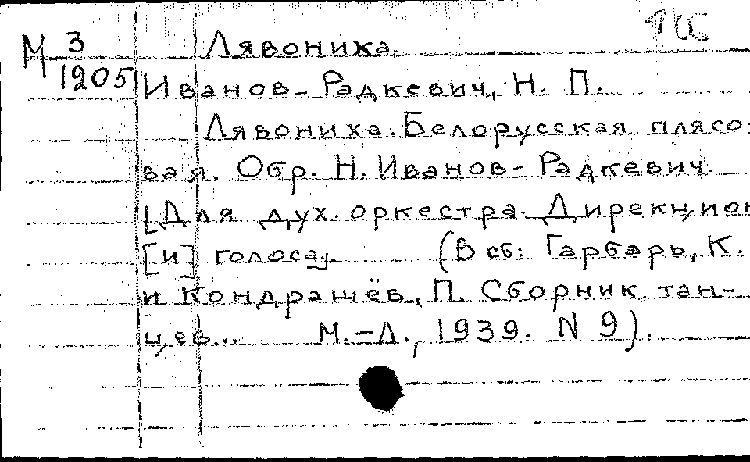 М 3 Лявониха.
1205 Иванов-Радкевич, Н. П.
Лявониха. Белорусская плясо-
вая. Обр. Н. Иванов-Радкевич.
[Для дух. оркестра. Дирекцион
[и] голоса].
(В сб: Гарбарь, К.
и Кондрашёв, П. Сборник тан-
цев... М.-Л., 1939. N 9).